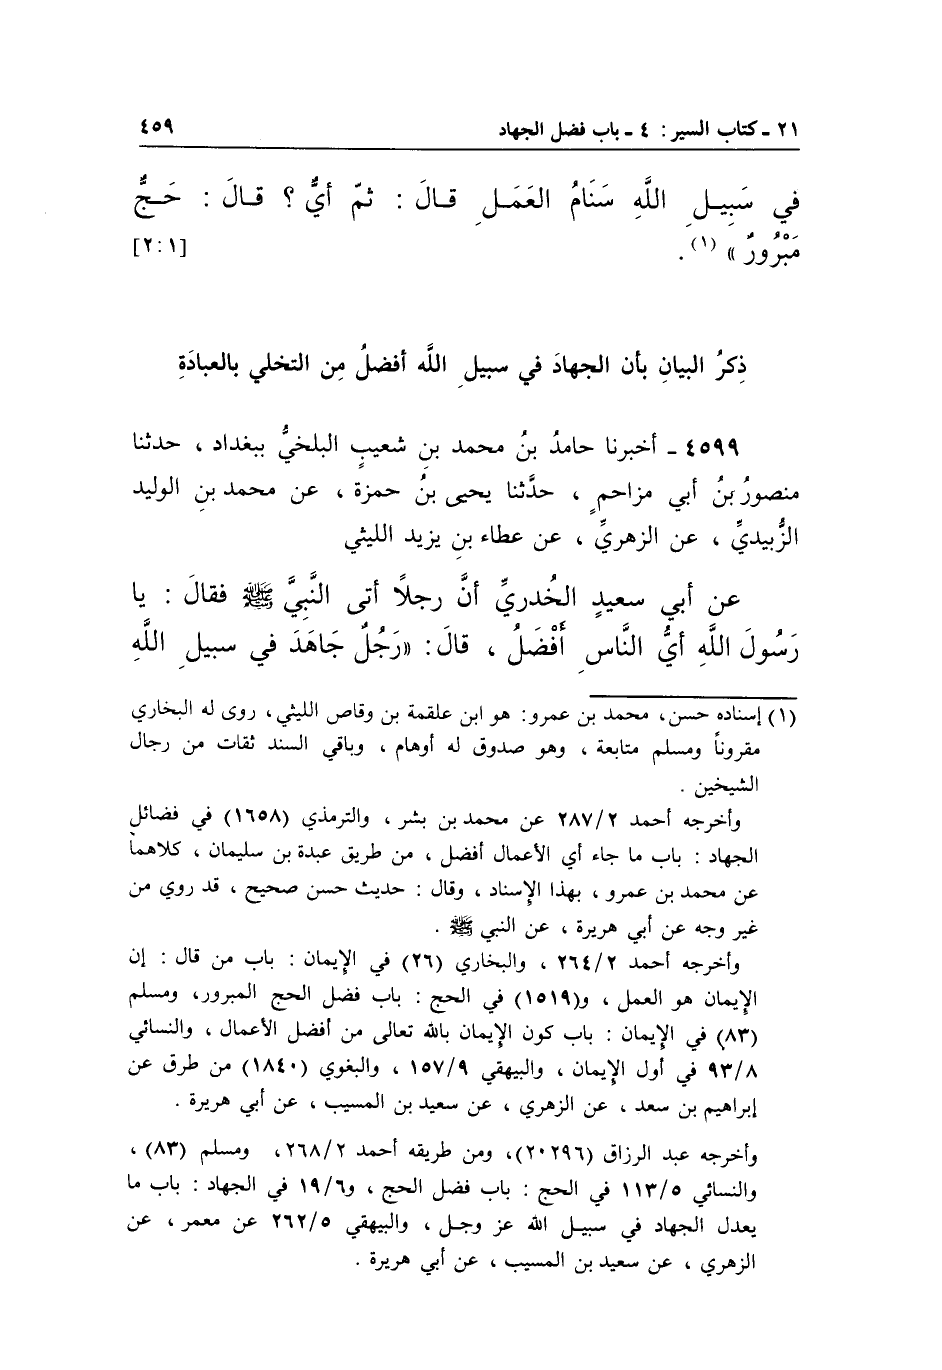 ٢١ ـ كتاب السير : ٤ ـ باب فضل الجهاد ٤٥٩
في سَبِيلِ اللَّهِ سَنَامُ العَمَلِ قالَ : ثمّ أيُّ ؟ قالَ : حَجٌّ
مَبْرُورٌ » (١) . [٢:١]
ذِكرُ البيانِ بأن الجهادَ في سبيلِ اللَّه أفضلُ مِن التخلي بالعبادَةِ
٤٥٩٩ ـ أخبرنا حامدُ بنُ محمد بنِ شعيبٍ البلخيُّ ببغداد ، حدثنا
منصورُ بنُ أبي مزاحمٍ ، حدَّثنا يحيى بنُ حمزة ، عن محمد بنِ الوليد
الزُّبيديِّ ، عن الزهريِّ ، عن عطاء بنِ يزيد الليثي
عن أبي سعيدٍ الخُدريِّ أنَّ رجلاً أتى النَّبِيَّ ﷺ فقالَ : يا
رَسُولَ اللَّهِ أيُّ النَّاسِ أَفْضَلُ ، قالَ : «رَجُلٌ جَاهَدَ في سبيلِ اللَّهِ
(١) إسناده حسن، محمد بن عمرو: هو ابن علقمة بن وقاص الليثي، روى له البخاري
مقروناً ومسلم متابعة ، وهو صدوق له أوهام ، وباقي السند ثقات من رجال
الشيخين .
وأخرجه أحمد ٢٨٧/٢ عن محمد بن بشر ، والترمذي (١٦٥٨) في فضائل
الجهاد : باب ما جاء أي الأعمال أفضل ، من طريق عبدة بن سليمان ، كلاهما
عن محمد بن عمرو ، بهذا الإسناد ، وقال : حديث حسن صحيح ، قد روي من
غير وجه عن أبي هريرة ، عن النبي ﷺ .
وأخرجه أحمد ٢٦٤/٢ ، والبخاري (٢٦) في الإيمان : باب من قال : إن
الإيمان هو العمل ، و(١٥١٩) في الحج : باب فضل الحج المبرور، ومسلم
(٨٣) في الإيمان : باب كون الإيمان بالله تعالى من أفضل الأعمال ، والنسائي
٩٣/٨ في أول الإيمان ، والبيهقي ١٥٧/٩ ، والبغوي (١٨٤٠) من طرق عن
إبراهيم بن سعد ، عن الزهري ، عن سعيد بن المسيب ، عن أبي هريرة .
وأخرجه عبد الرزاق (٢٠٢٩٦)، ومن طريقه أحمد ٢٦٨/٢، ومسلم (٨٣) ،
والنسائي ١١٣/٥ في الحج : باب فضل الحج ، و١٩/٦ في الجهاد : باب ما
يعدل الجهاد في سبيل الله عز وجل ، والبيهقي ٢٦٢/٥ عن معمر ، عن
الزهري ، عن سعيد بن المسيب ، عن أبي هريرة .